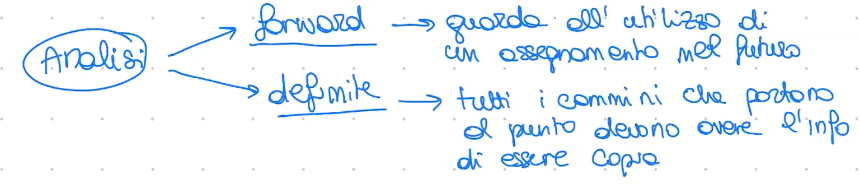 Analisi
forward → guarda all'utilizzo di
un assegnamento nel futuro
definite → tutti i cammini che portano
al punto devono avere l'info
di essere copia